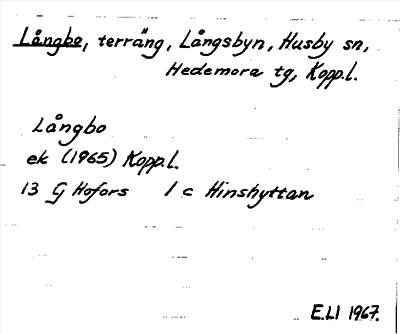 Långbo, terräng, Långsbyn, Husby sn,
Hedemora tg, Kopp.l.
Långbo
ek (1965) Kopp.l.
13 G Hofors 1 c Hinshyttan
E.Ll 1967.